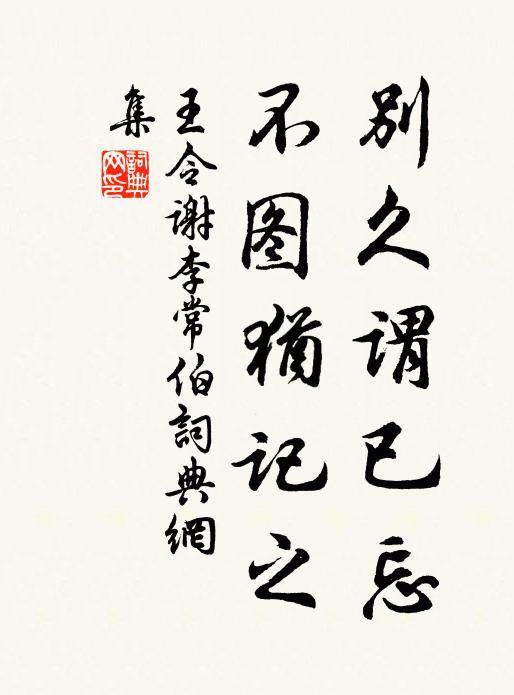 别久谓已忘
不图犹记之
王令谢李常伯詞典網
集
詞典网印